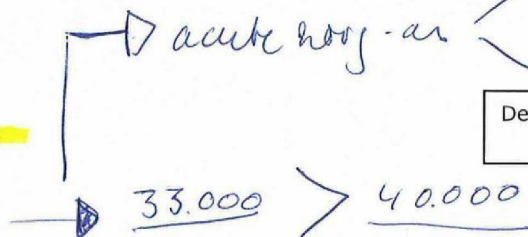 acute zorg - an
De
33.000 > 40.000